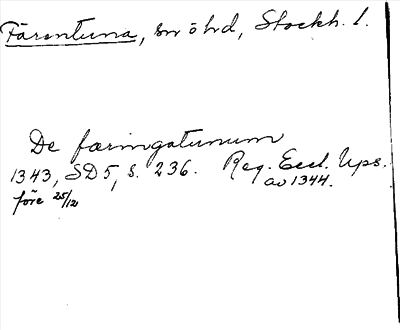 Färentuna, sn ö hd, Stockh. l.
De færingatunum
1343, SD 5, s. 236. Reg. Eccl. Ups.
före 25/12 av 1344.